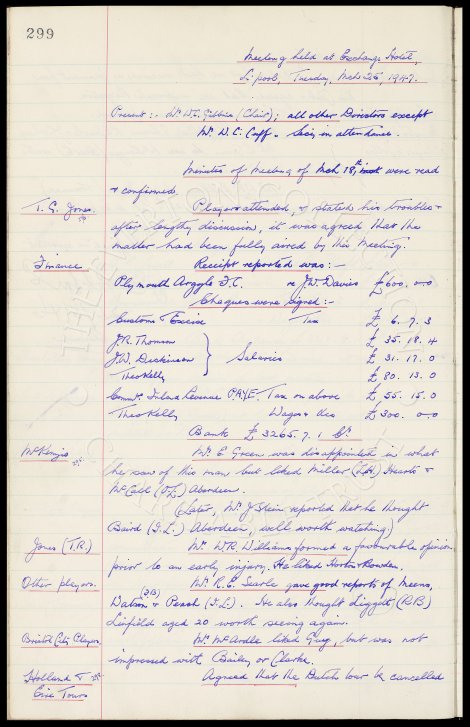 299
Meeting held at Exchange Hotel,
L'pool, Tuesday, Mch 25, 1947.
Present:- Mr. W.C. Gibbins, (Chair); all other Directors except
Mr. W. C. Cuff. Secy in attendance.
Minutes of Meeting of Mch 18th were read
& confirmed.
T. G. Jones.
Player attended, & stated his troubles &
after lengthy discussion, it was agreed that the
matter had been fully aired by this meeting.
Finance
Receipt reported was:-
Plymouth Argyle F.C. re J.W. Davies £600. 0-0
Cheques were signed:-
Customs & Excise Tax £ 6. 7. 3
J.R. Thomson £ 35. 18. 4
J.W. Dickinson } Salaries £ 31. 17. 0
Theo Kelly £ 80. 13. 0
Commrs Inland Revenue P.A.Y.E. Tax on above £ 55. 15. 0
Theo Kelly Wages &c £ 300. 0-0
Bank £ 3265. 7. 1 Cr.
McKenzie
Mr. E Green was disappointed in what
he saw of this man but liked Miller (LH) Hearts &
McCall (OL) Aberdeen.
(Later, Mr. J Stein reported that he thought
Baird (I.L.) Aberdeen, well worth watching)
Jones (T.R.)
Mr. W.R. Williams formed a favourable opinion
prior to an early injury. He liked Horton & Rowden.
Other players.
Mr. R.E. Searle gave good reports of Means,
Watson & Pearch (I.L.). He also thought Liggett (RB)
Linfield aged 20 worth seeing again.
Bristol City Players.
Mr. McArdle liked Guy, but was not
impressed with Bailey or Clarke.
Holland &
Eire Tours
Agreed that the Dutch tour be cancelled